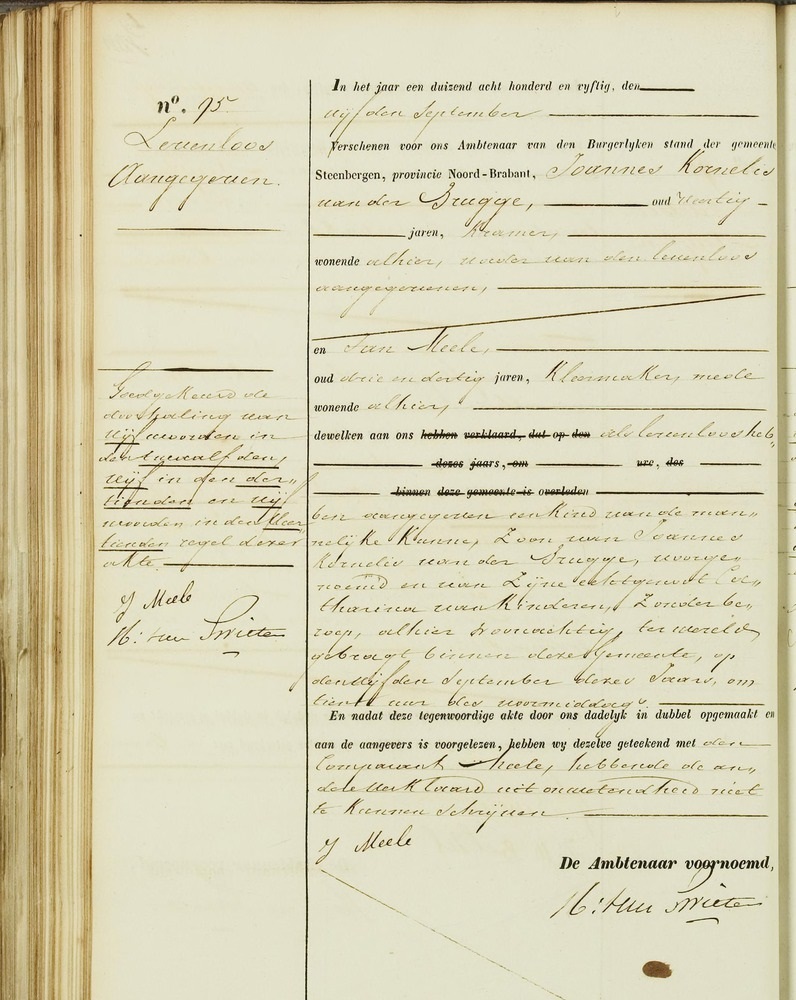 nº. 95
Levenloos
Aangegeven.
In het jaar een duizend acht honderd en vyftig, den
vijfden September
Verschenen voor ons Ambtenaar van den Burgerlyken stand der gemeente
Steenbergen, provincie Noord-Brabant, Joannes Kornelis
van der Brugge, oud veertig
jaren, Kramer,
wonende alhier, vader van den levenloos
aangegevenen,
en Jan Meele,
oud drie en dertig jaren, Kleermaker, mede
wonende alhier,
dewelken aan ons hebben verklaard, dat op den als levenloos heb„
dezes jaars, om ure, des
binnen deze gemeente is overleden
ben aangegeven een kind van de man„
nelijke Kunne, Zoon van Joannes
Kornelis van der Brugge, voorge„
noemd en van Zijne echtgenoot Ca„
tharina van Kinderen, Zonder be„
roep, alhier woonachtig, ter wereld
gebragt binnen deze Gemeente, op
den vijfden September dezes Jaars, om
tien uur des voormiddags.
En nadat deze tegenwoordige akte door ons dadelyk in dubbel opgemaakt en
aan de aangevers is voorgelezen, hebben wy dezelve geteekend met den
Comparant Meele, hebbende de an„
dere verklaard uit onwetendheid niet
te Kunnen Schrijven.
J Meele
De Ambtenaar voornoemd,
H: van Swieten
Goedgekeurd de
doorhaling van
vijf woorden in
den twaalfden,
vijf in den der„
tienden en vijf
woorden in den veer
tienden regel dezer
akte.
J Meele
H: van Swieten